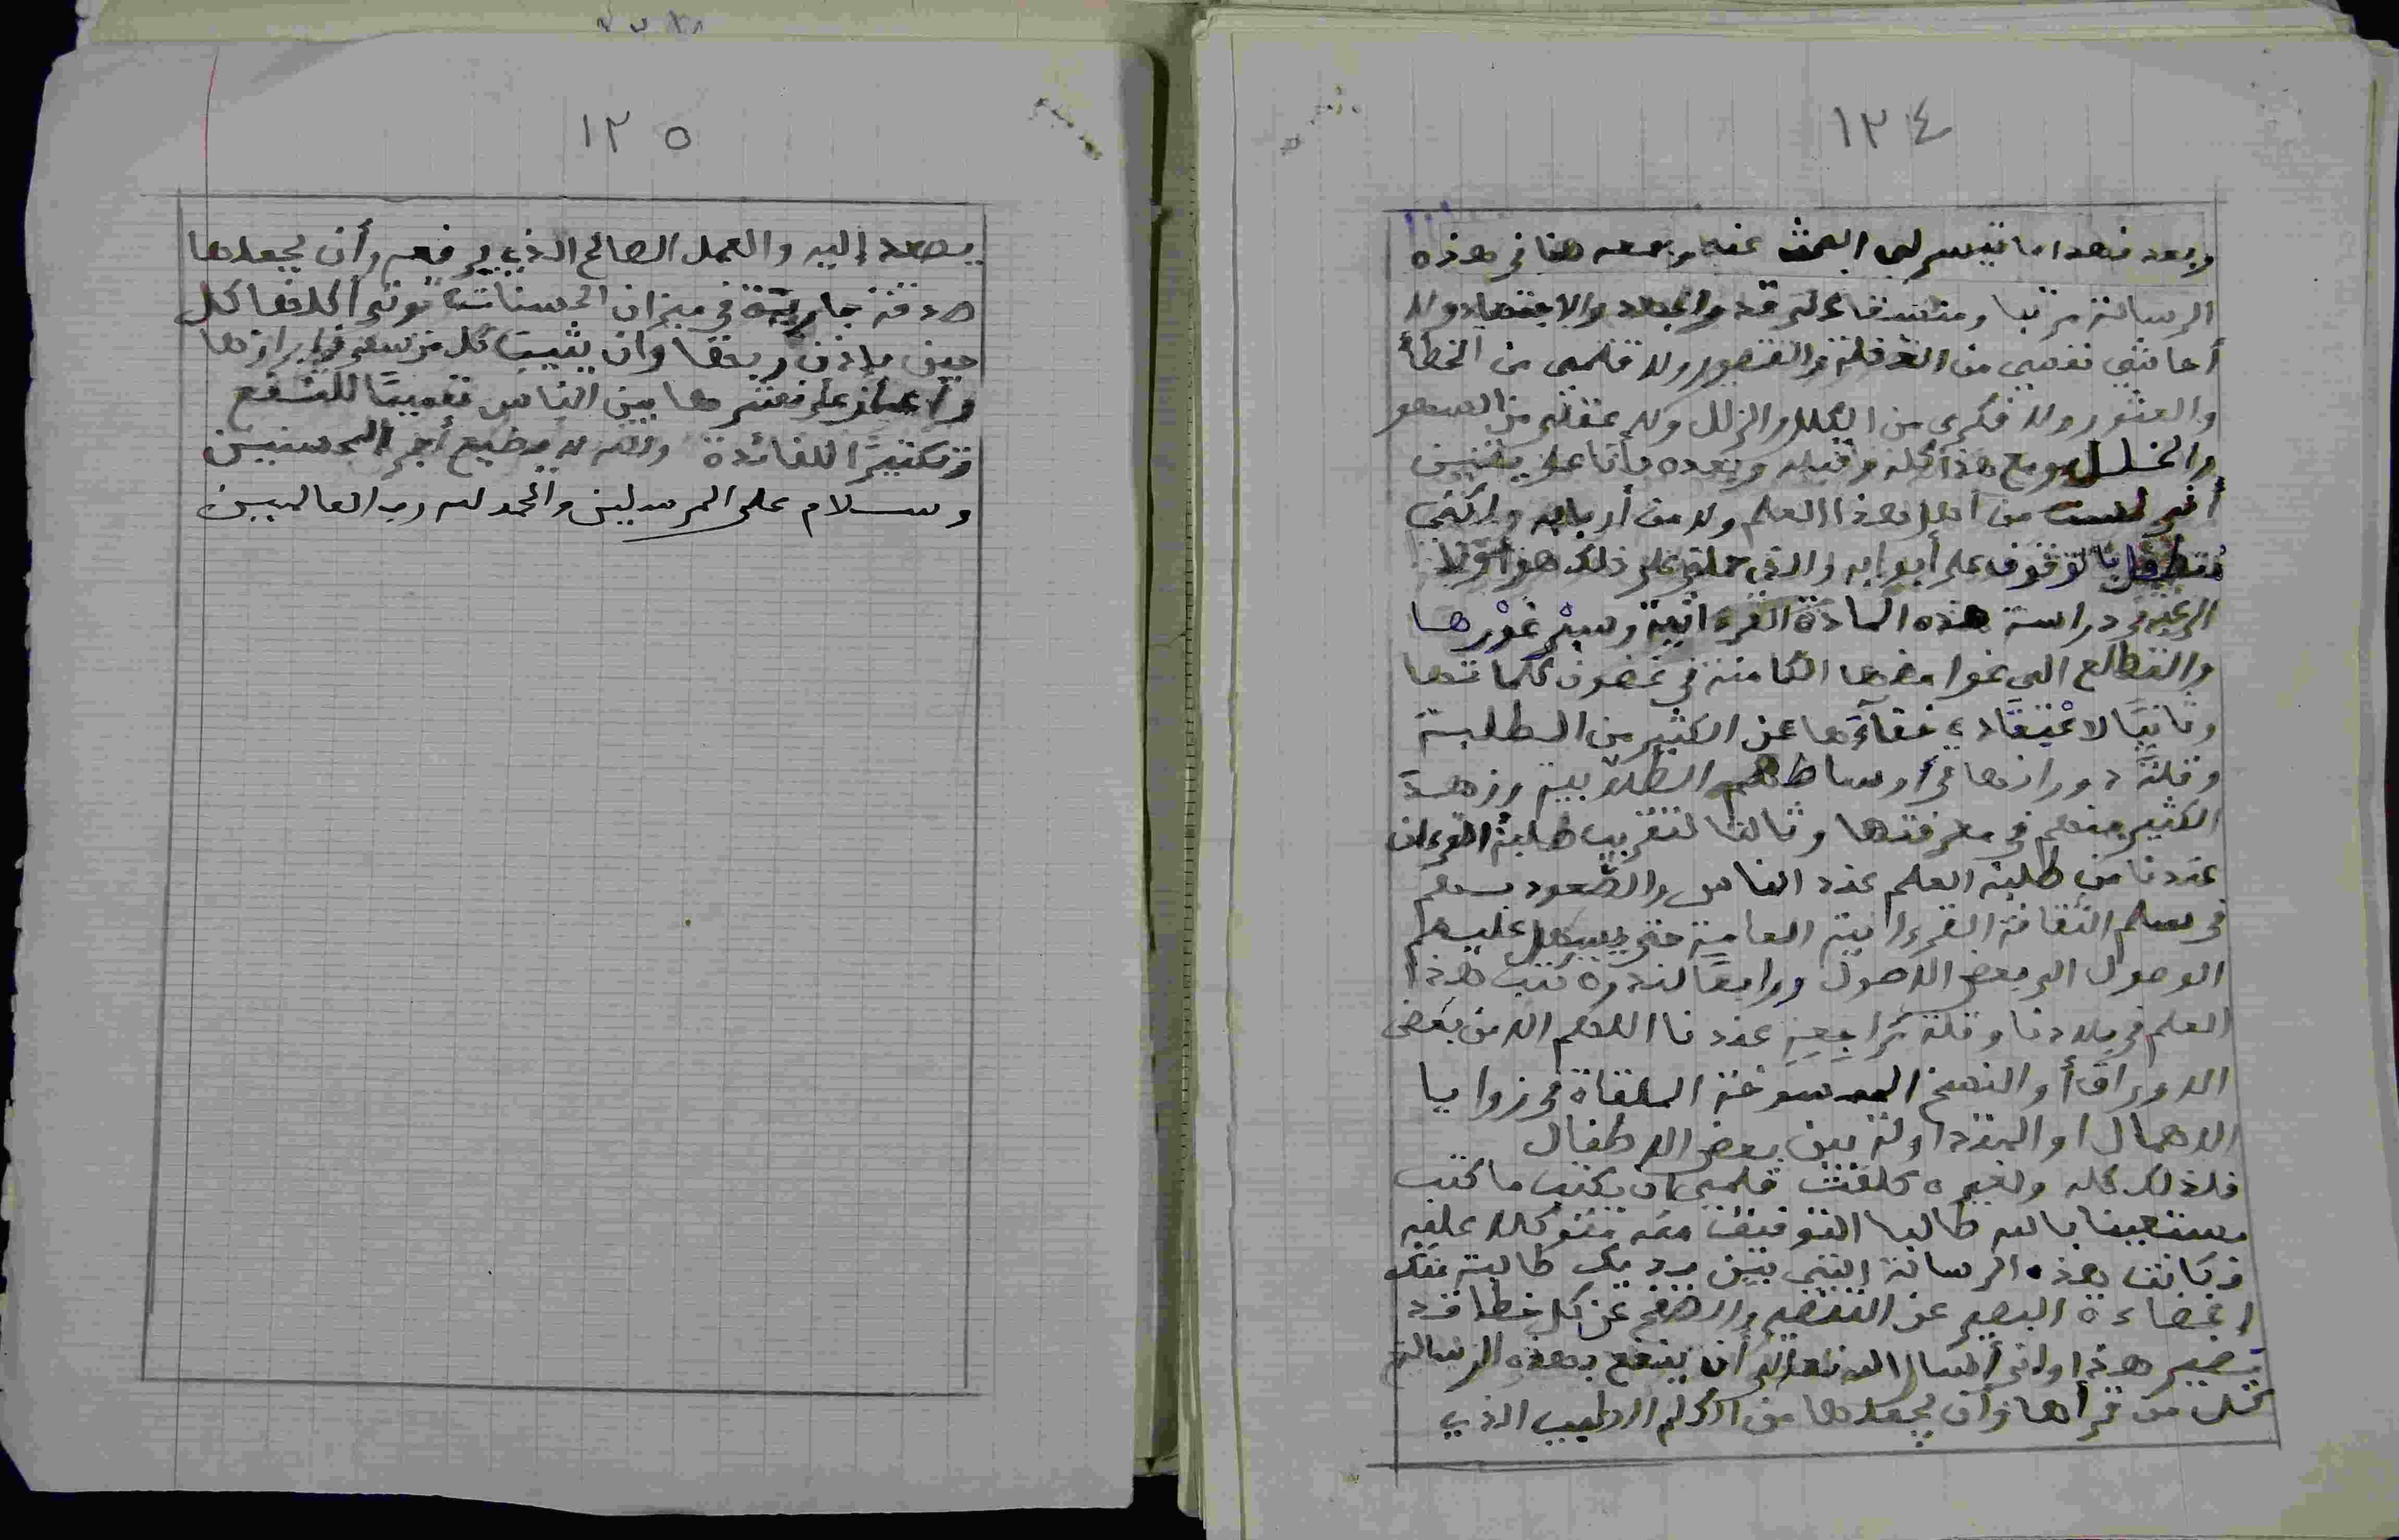 ١٣٤
وبعد فهذا ما تيسر لي البحث عنه وجمعه هنا في هذه
الرسالة مرتبا ومنسقا على قدر الجهد والاجتهاد ولا
أحاشي نفسي من الغفلة والقصور ولا قلمي من الخطأ
والعثور ولا فكري من الكلل والزلل ولا عقلي من السهو
والخلل ومع هذا كله وقبله وبعده فأنا على يقين
أني لست من أهل هذا العلم ولا من أربابه ولكنني
متطفل بالوقوف على أبوابه والذي حملني على ذلك هو أولا
الرغبة في دراسة هذه المادة القرءانية وسبْر غوْرها
والتطلع الى غوامضها الكامنة في غضون كلماتها
وثانيًا لاعْتقادي خفآءَها عن الكثير من الطلبة
وقلة دورانها في أوساطهم الطلابية وزهد
الكثير منهم في معرفتها وثالثا لتقريب طلبة القرءان
عندنا من طلبة العلم عند الناس والصّعود بهم
في سلم الثقافة القرءانية العامية حتى يسهل عليهم
الوصول الى بعض الاصول ورابعًا لندرة كتب هذا
العلم في بلادنا وقلة مراجعِهِ عندنا اللهم الا من بعض
الاوراق أو النسخ المنسوخة الملقاة في زوايا
الاهمال او المتداولة بين بعض الاطفال
فلذلك كله ولغيره كلفت قلمي ان يكتب ما كتب
مستعينا بالله طالبا التوفيق منه متوكلا عليه
فكانت هذه الرسالة التي بين يديك طالبة منك
إغضاءة البصير عن التقصير والصفح عن كل خطا قد
يضير هذا واني أسال الله تعالى أن ينفع بهذه الرسالة
كل من قرأها وأن يجعلها من الكلم الطيب الذي
١٣٥
يصعد إليه والعمل الصالح الذي يرفعه وأن يجعلها
صدقة جارية في ميزان الحسنات تؤتي أكلها كل
حين بإذن ربها وأن يثيب كل من سعى في إبرازها
وأعان على نشرها بين الناس تعميمًا للنفع
وتكثيرًا للفائدة والله لا يضيع أجر المحسنين
وسلام على المرسلين والحمد لله رب العالمين